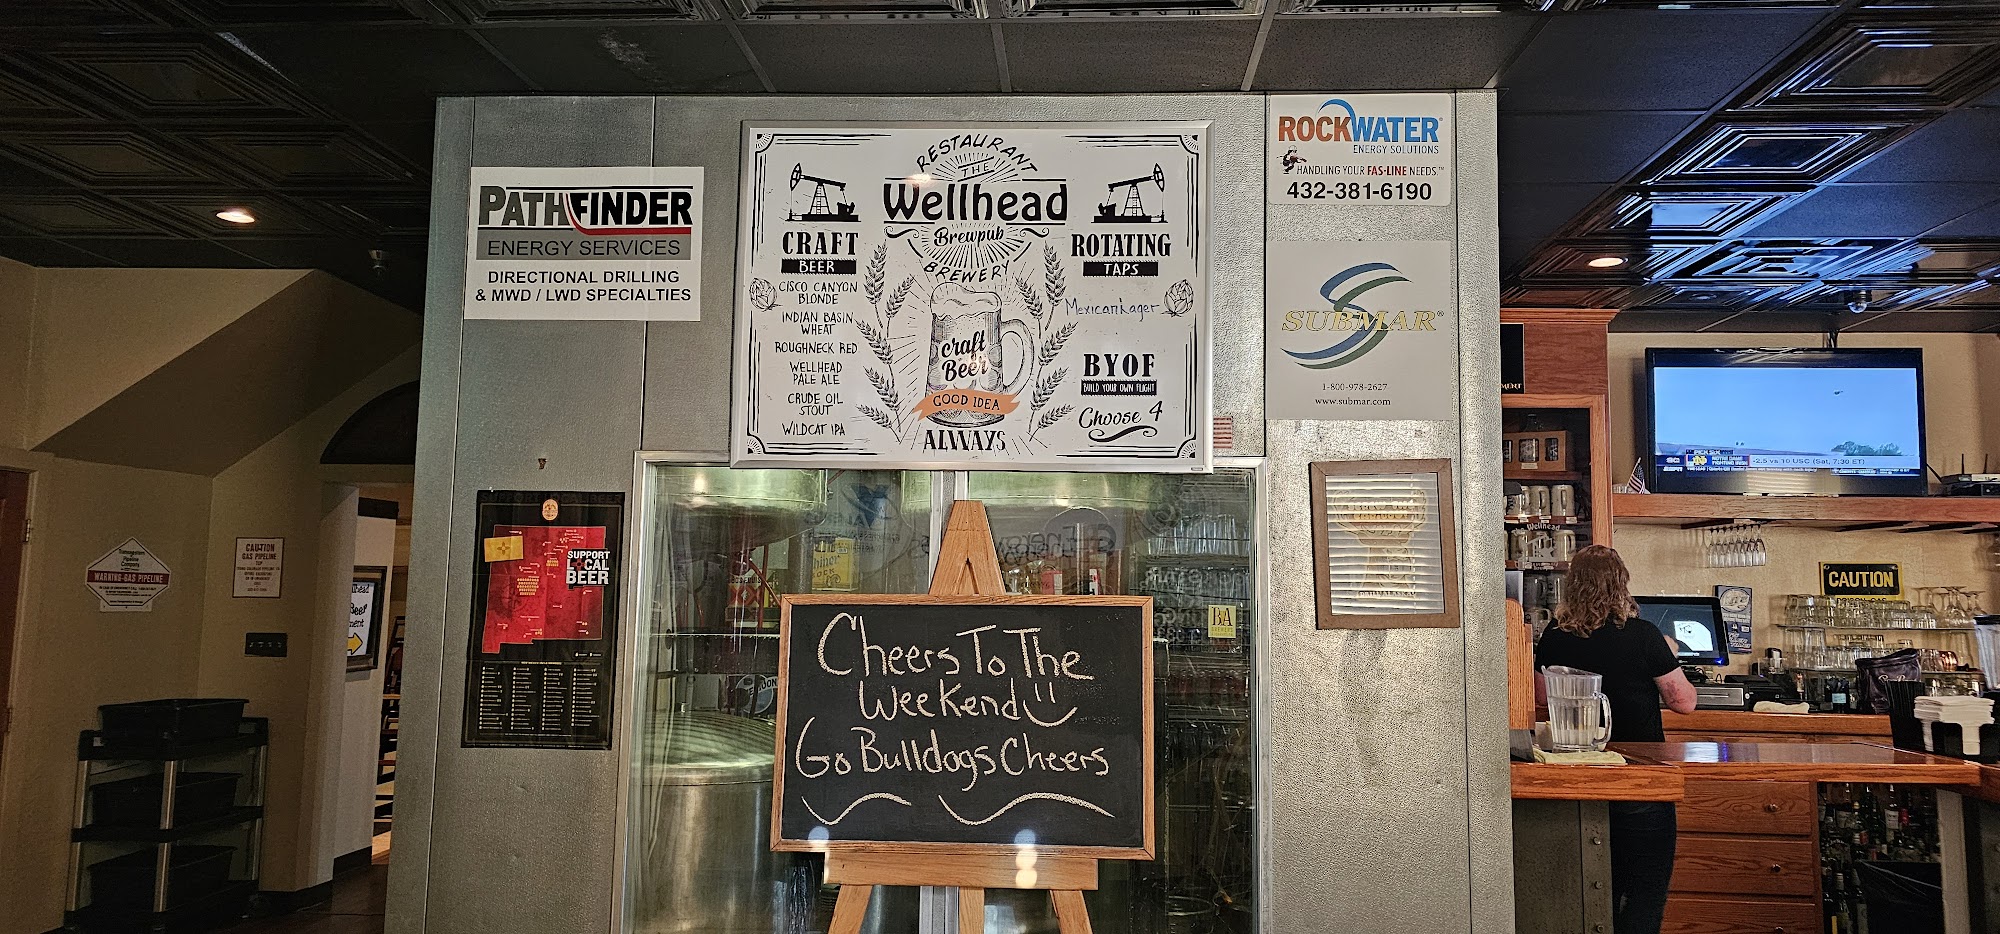 PATHFINDER
ENERGY SERVICES
DIRECTIONAL DRILLING
& MWD / LWD SPECIALTIES
RESTAURANT
THE
Wellhead
Brewpub
BREWERY
CRAFT
BEER
CISCO CANYON
BLONDE
INDIAN BASIN
WHEAT
ROUGHNECK RED
WELLHEAD
PALE ALE
CRUDE OIL
STOUT
WILDCAT IPA
craft
Beer
GOOD IDEA
ALWAYS
ROTATING
TAPS
Mexican Lager
BYOF
BUILD YOUR OWN FLIGHT
Choose 4
ROCKWATER
ENERGY SOLUTIONS
HANDLING YOUR FAS-LINE NEEDS.™
432-381-6190
SUBMAR®
1-800-978-2627
www.submar.com
SUPPORT
LOCAL
BEER
WARNING-GAS PIPELINE
CAUTION
GAS PIPELINE
Cheers To The
Weekend
Go Bulldogs Cheers
BA
-2.5 vs 10 USC (Sat, 7:30 ET)
Wellhead
CAUTION